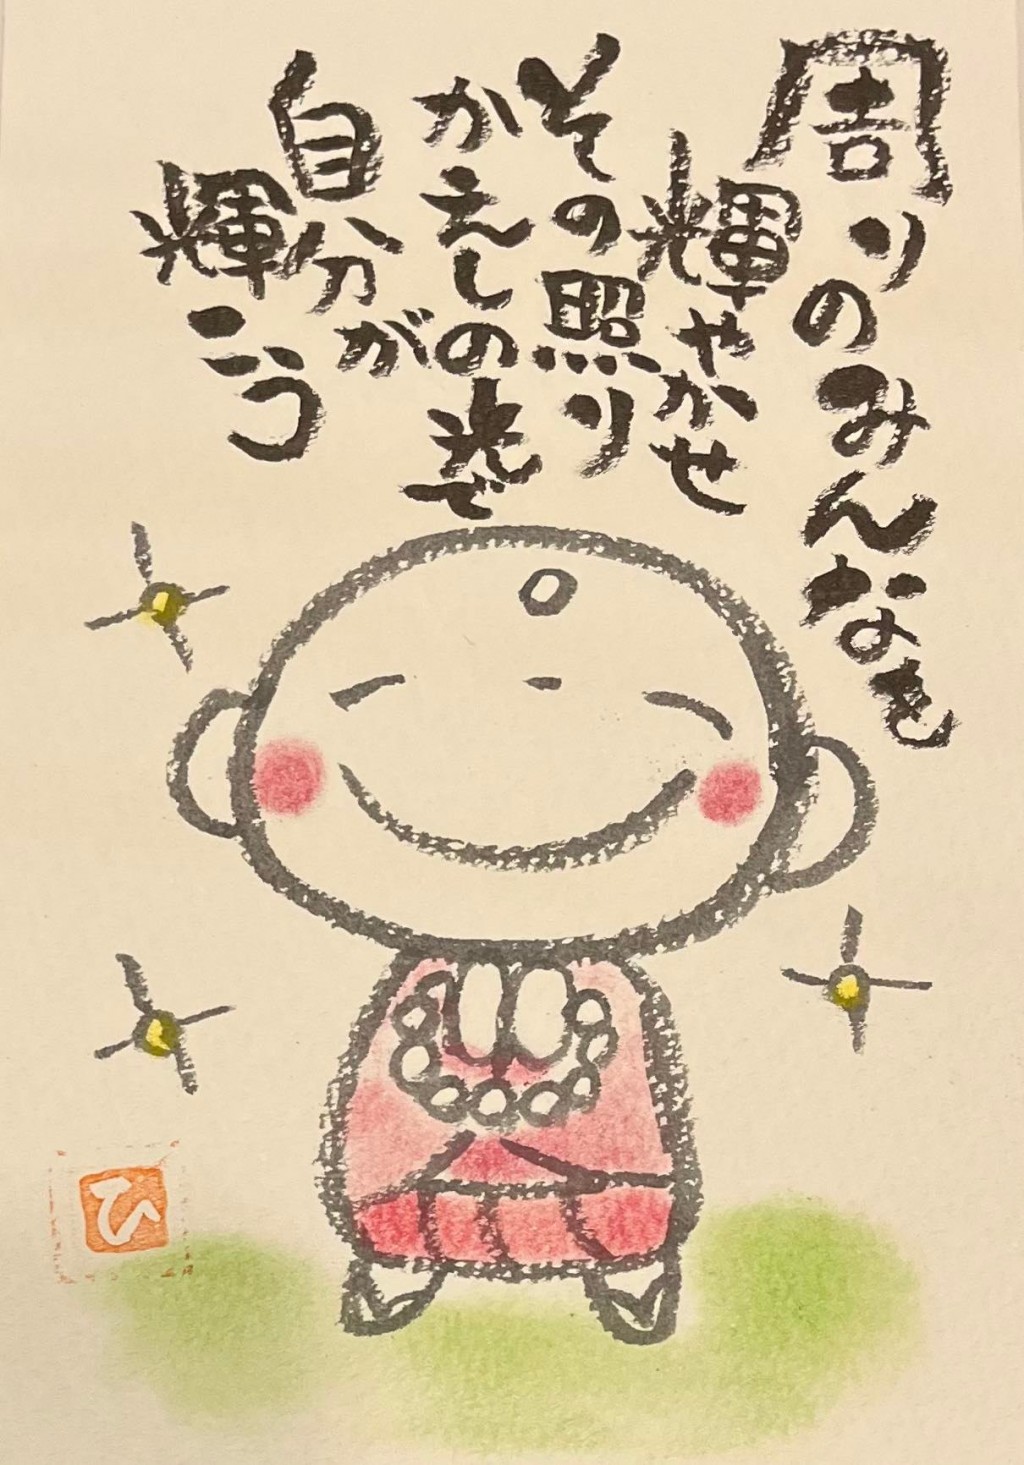 周りのみんなを
輝やかせ
その照り
かえしの光で
自分が
輝こう
ひ